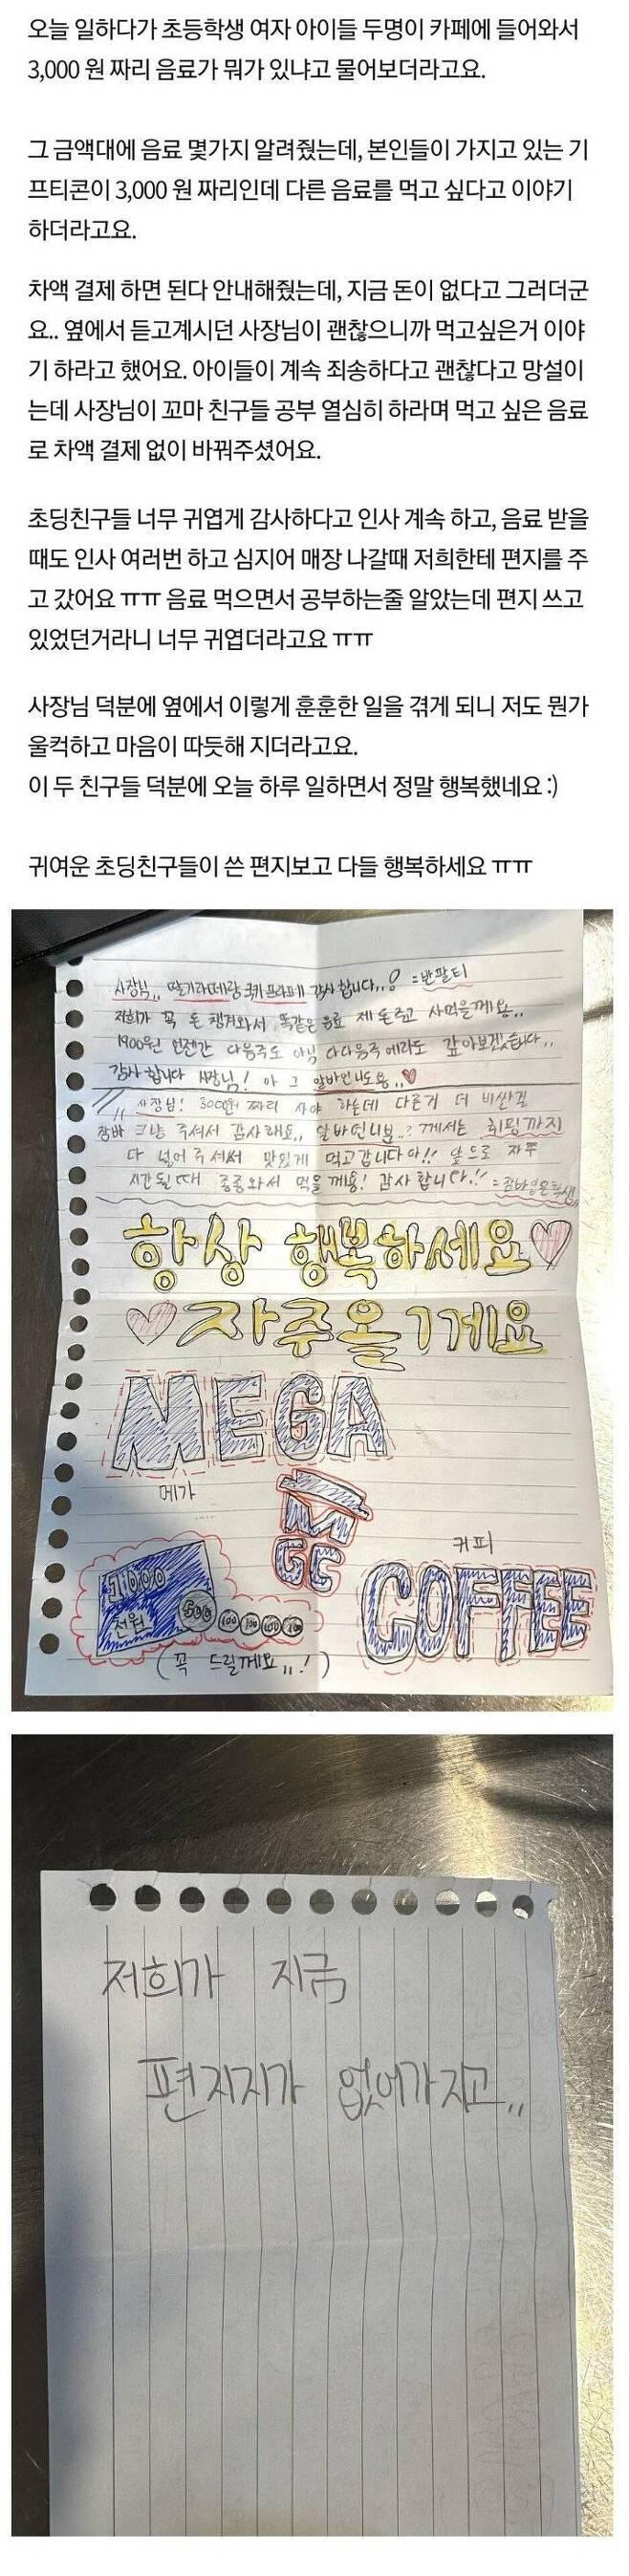 오늘 일하다가 초등학생 여자 아이들 두명이 카페에 들어와서
3,000 원 짜리 음료가 뭐가 있냐고 물어보더라고요.
그 금액대에 음료 몇가지 알려줬는데, 본인들이 가지고 있는 기
프티콘이 3,000 원 짜리인데 다른 음료를 먹고 싶다고 이야기
하더라고요.
차액 결제 하면 된다 안내해줬는데, 지금 돈이 없다고 그러더군
요.. 옆에서 듣고계시던 사장님이 괜찮으니까 먹고싶은거 이야
기 하라고 했어요. 아이들이 계속 죄송하다고 괜찮다고 망설이
는데 사장님이 꼬마 친구들 공부 열심히 하라며 먹고 싶은 음료
로 차액 결제 없이 바꿔주셨어요.
초딩친구들 너무 귀엽게 감사하다고 인사 계속 하고, 음료 받을
때도 인사 여러번 하고 심지어 매장 나갈때 저희한테 편지를 주
고 갔어요 ㅠㅠ 음료 먹으면서 공부하는줄 알았는데 편지 쓰고
있었던거라니 너무 귀엽더라고요 ㅠㅠ
사장님 덕분에 옆에서 이렇게 훈훈한 일을 겪게 되니 저도 뭔가
울컥하고 마음이 따듯해 지더라고요.
이 두 친구들 덕분에 오늘 하루 일하면서 정말 행복했네요 :)
귀여운 초딩친구들이 쓴 편지보고 다들 행복하세요 ㅠㅠ
사장님,, 딸기라떼랑 쿠키프라페 감사합니다..! =반팔티
저희가 꼭 돈 챙겨와서 똑같은 음료 제 돈주고 사먹을께요..
1900원 언젠간 다음주도 아님 다다음주에라도 갚아보겠습니다..
감사합니다 사장님! 아 그 알바언니도용..♥
사장님! 3000원 짜리 사야 하는데 다른거 더 비싼걸
그냥 주셔서 감사해요.. 알바언니분..? 께서는 휘핑까지
다 넣어주셔서 맛있게 먹고갑니다아!! 앞으로 자주
시간될때 종종와서 먹을께용! 감사합니다!!
항상 행복하세요♡
♡자주올게요
MEGA
메가
M
GC
커피
COFFEE
1000
천원
500 100 100 100 100
(꼭 드릴께요,,!)
저희가 지금
편지지가 없어가지고,,